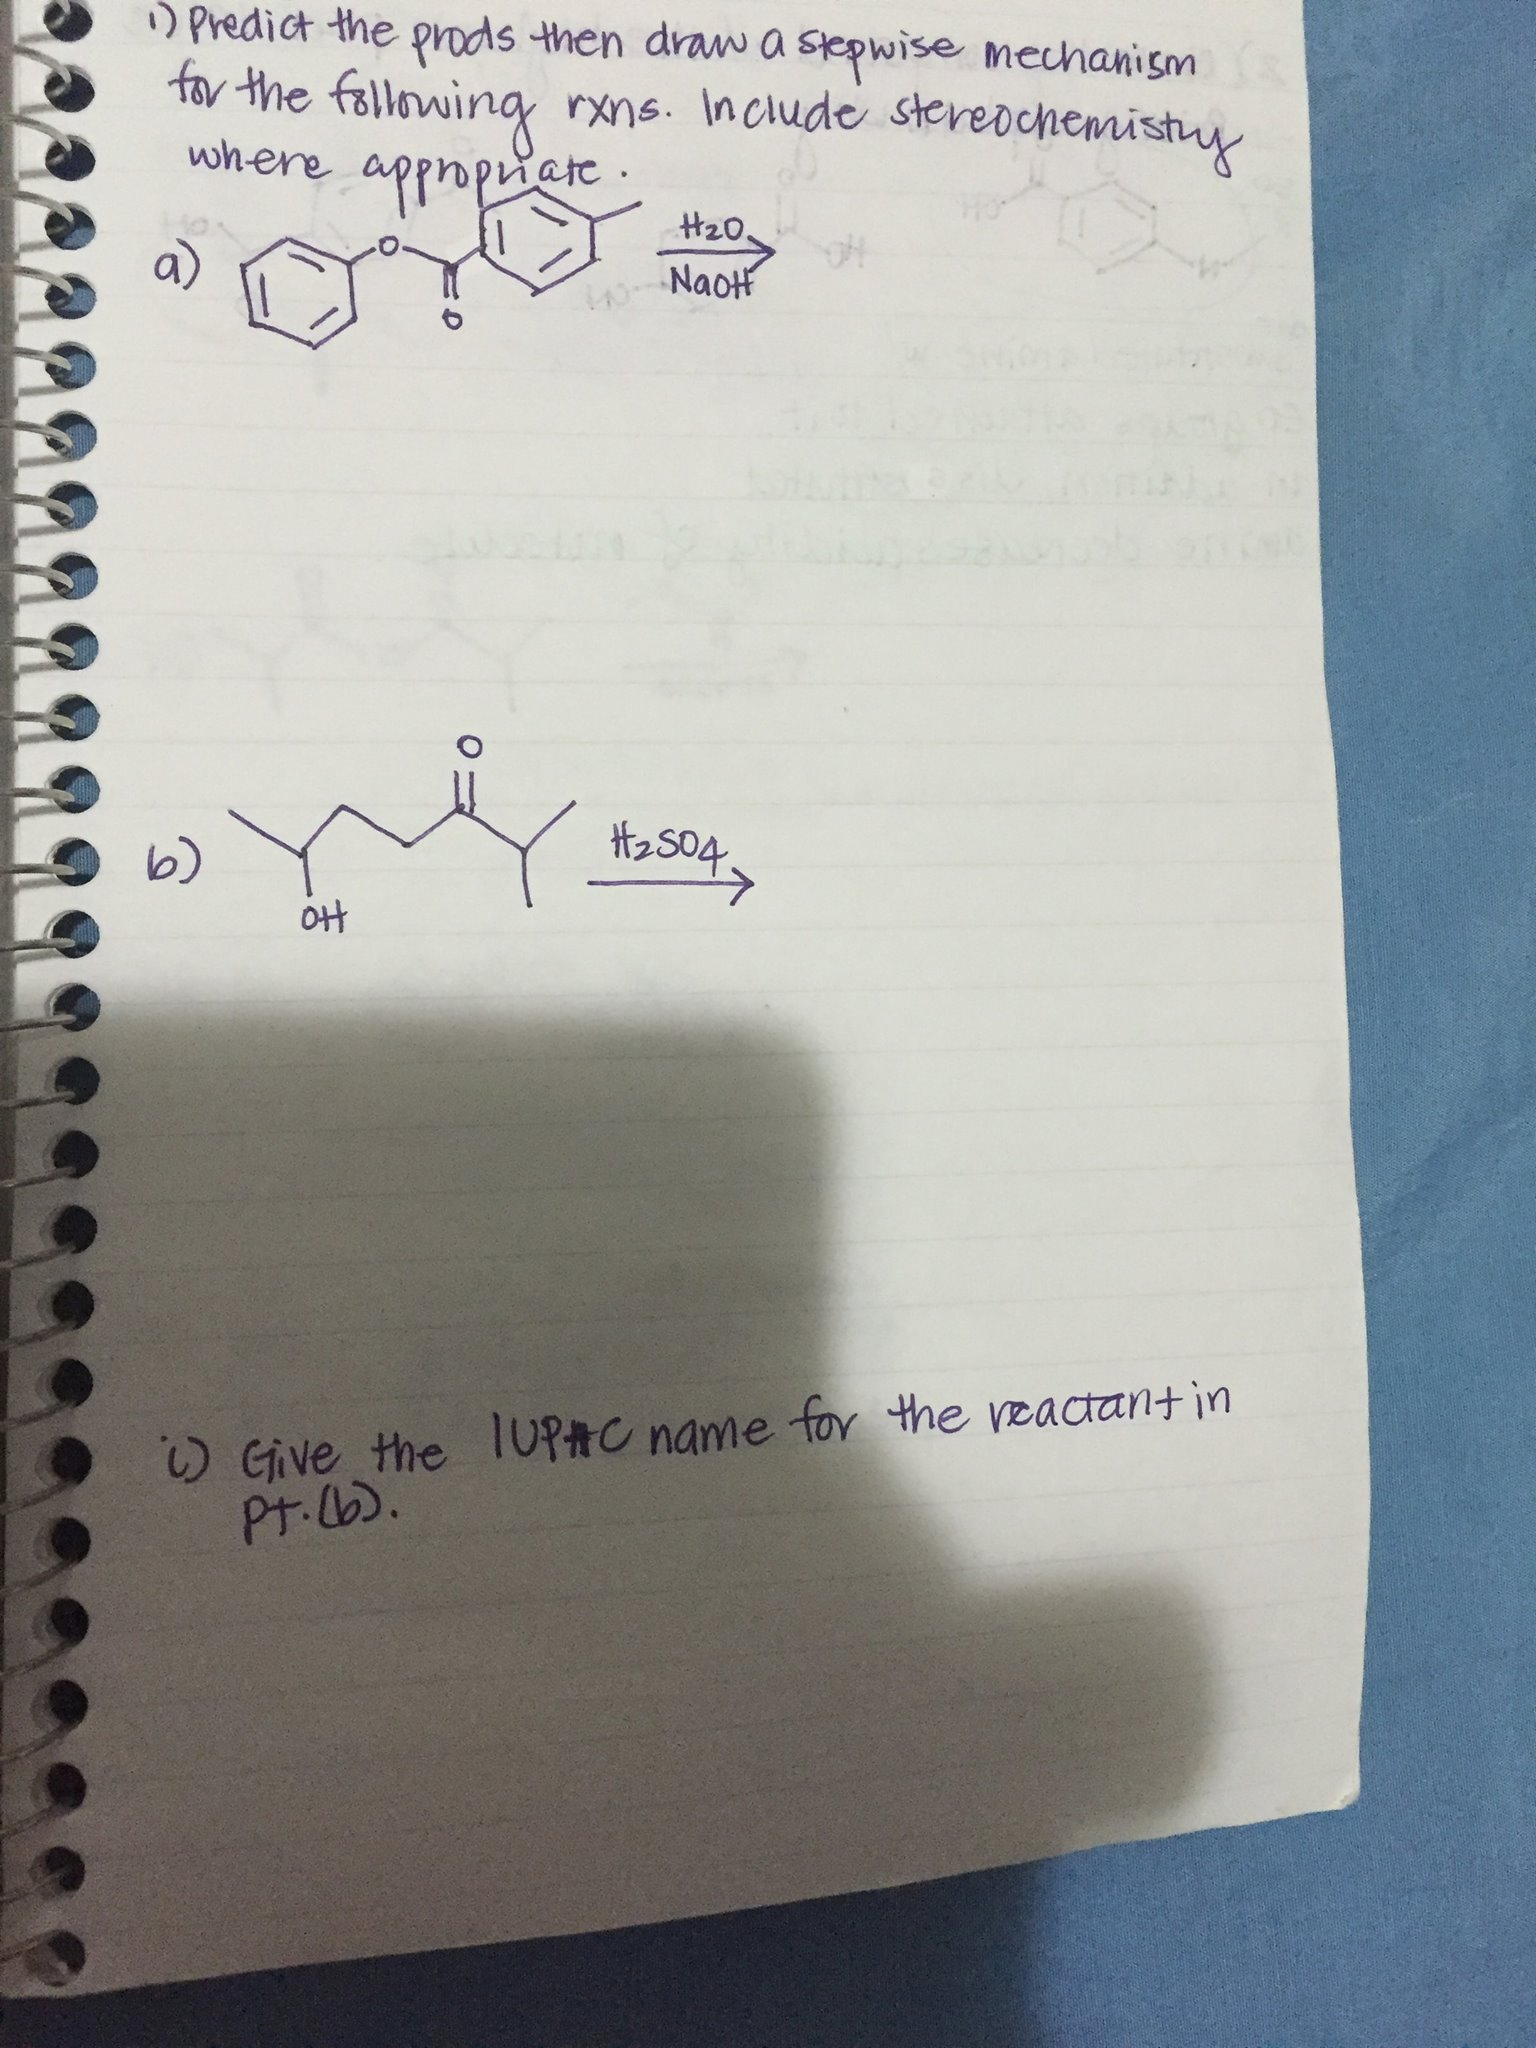 1) Predict the prods then draw a stepwise mechanism
for the following rxns. Include stereochemistry
where appropriate.
a)
O
O
H2O
NaOH
b)
O
OH
H2SO4
i) Give the IUPAC name for the reactant in
pt.(b).